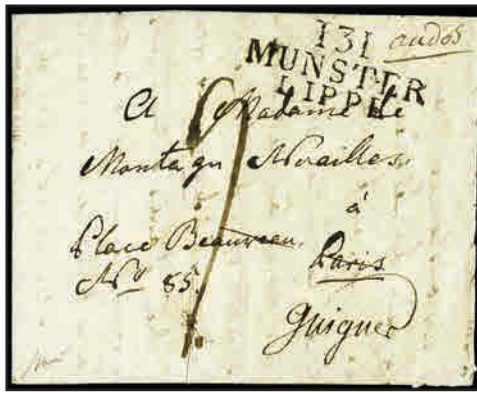 131
MUNSTER
LIPPE
au dos
A Madame de
Montagu Noailles
à
Place Beauveau
Paris
N° 85
Guigner